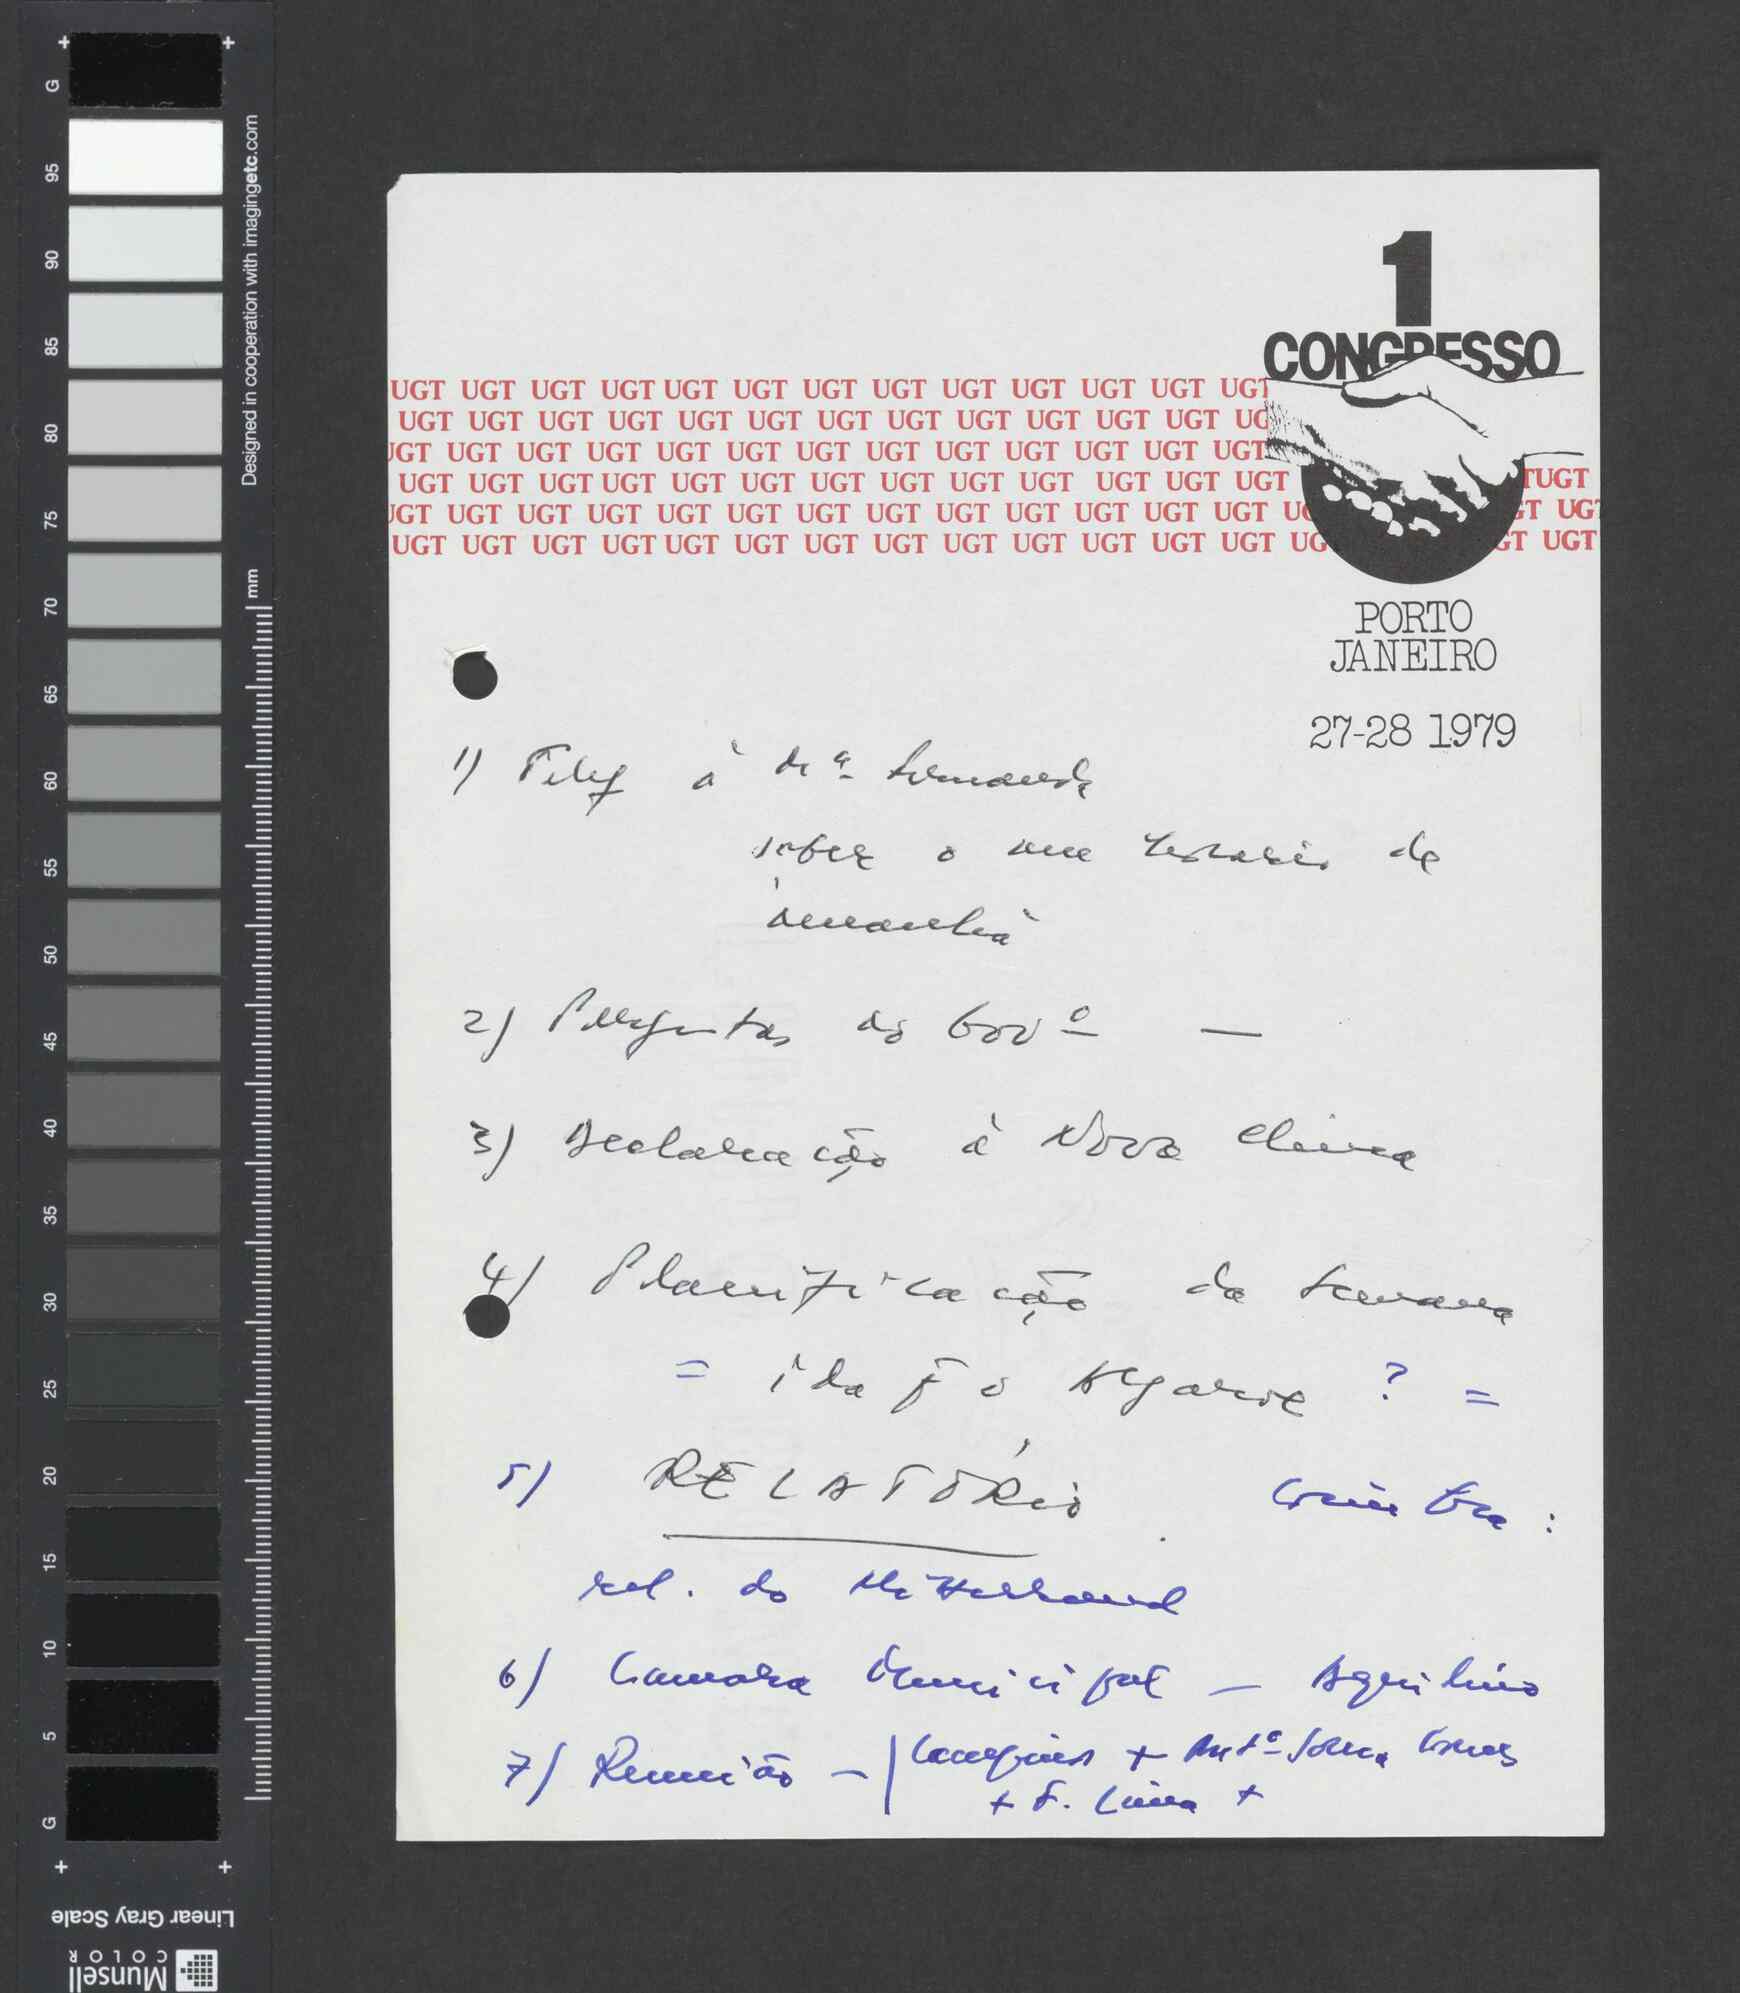 1
CONGRESSO
UGT UGT UGT UGT UGT UGT UGT UGT UGT UGT UGT UGT UGT
UGT UGT UGT UGT UGT UGT UGT UGT UGT UGT UGT UGT UG
UGT UGT UGT UGT UGT UGT UGT UGT UGT UGT UGT UGT UGT
UGT UGT UGT UGT UGT UGT UGT UGT UGT UGT UGT UGT UGT TUGT
UGT UGT UGT UGT UGT UGT UGT UGT UGT UGT UGT UGT UGT UG GT UGT
UGT UGT UGT UGT UGT UGT UGT UGT UGT UGT UGT UGT UGT UG GT UGT
PORTO
JANEIRO
27-28 1979
1) Telef à Mª Fernanda
sobre o meu horário de
amanhã
2) Perguntas ao Govº —
3) Declaração à Nova China
4) Planificação da semana
= ida p o Algarve ? =
5) RELATÓRIO Coimbra :
rel. do Mitterrand
6) Camara Municipal — Aquilino
7) Reunião — Campinos + Antº Sousa Gomes
+ F. Lima +
G
95
90
85
80
75
70
65
60
55
50
45
40
35
30
25
20
15
10
5
G
Designed in cooperation with imagingetc.com
mm
Linear Gray Scale
Munsell
COLOR